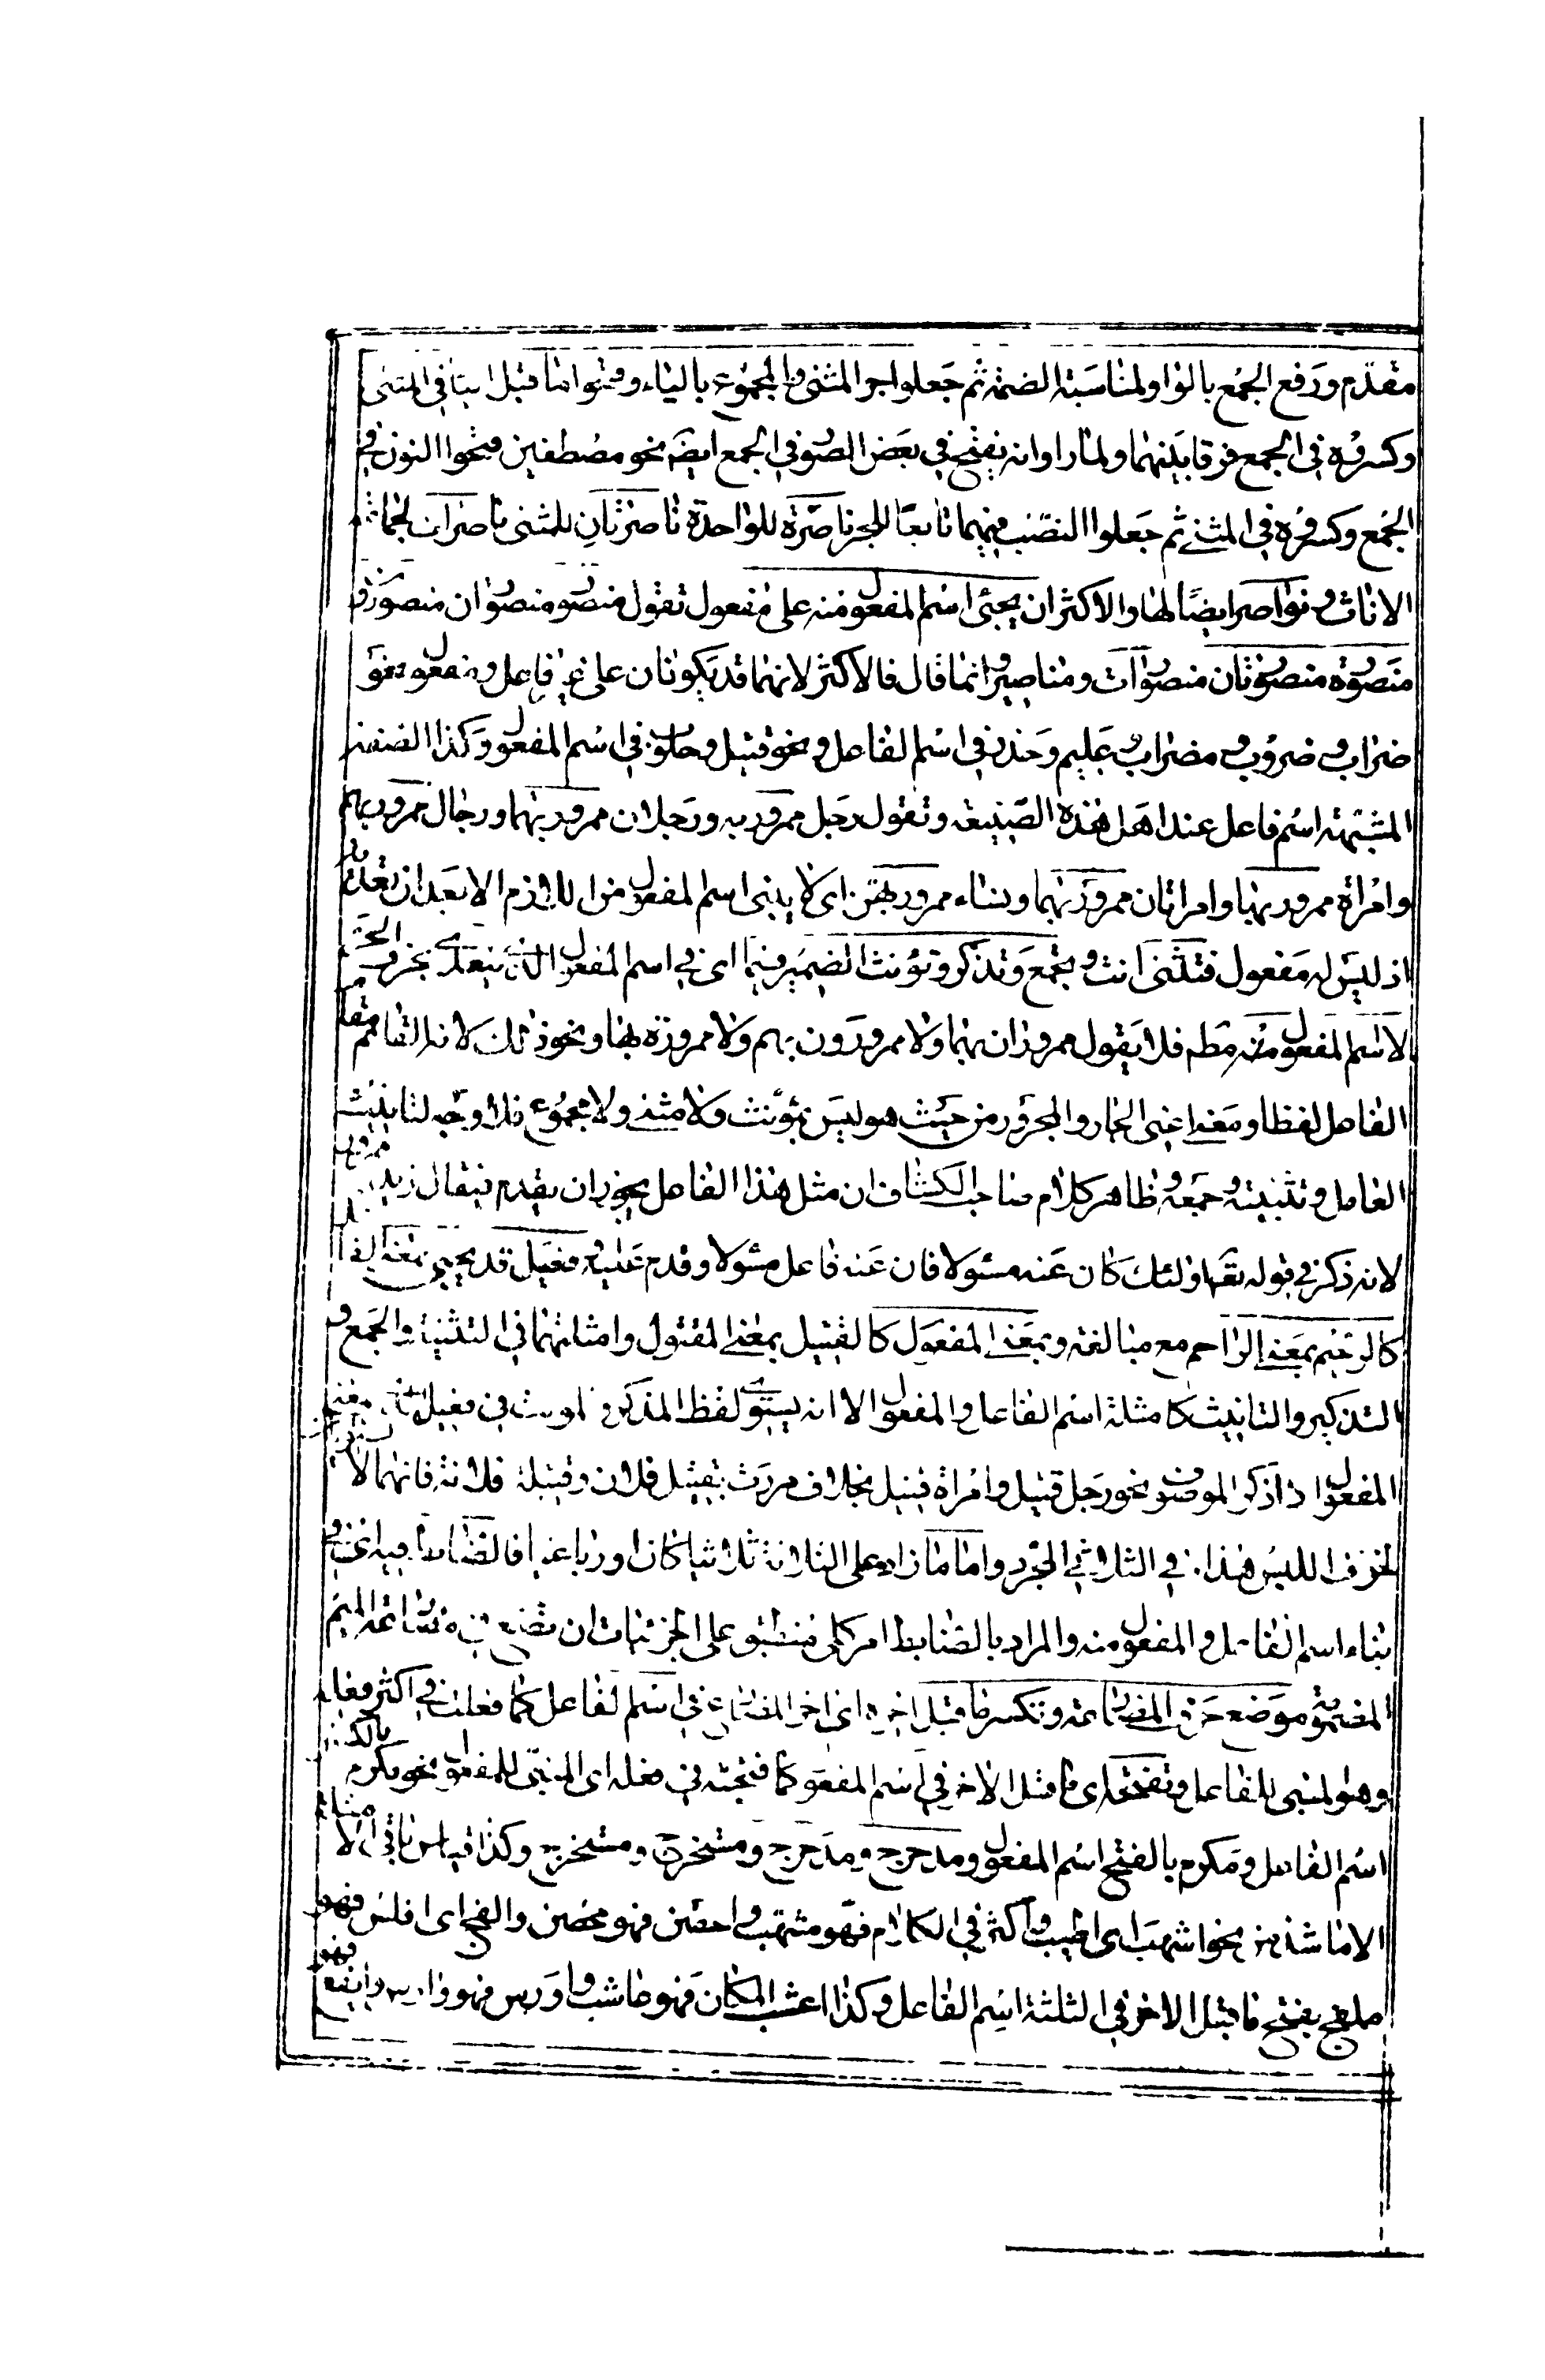 مقدّم ورفع الجمع بالواو لمناسبة الضمة ثم جعلوا جر المثنى والمجموع بالياء وفتحوا ما قبل الياء في المثنى
وكسروه في الجمع فرقا بينهما ولما راوا انه يفتح في بعض الصور في الجمع ايضا نحو مصطفين فتحوا النون في
الجمع وكسروه في المثنى ثم جعلوا النصب فيهما تابعا للجر ناصرة للواحدة ناصرتان للمثنى ناصرات لجماعة
الاناث ونواصر ايضا لها والاكثر ان يجئ اسم المفعول منه على مفعول تقول منصور منصوران منصورون
منصورة منصورتان منصورات ومناصير وانما قال فالاكثر لانهما قد يكونان على غير فاعل ومفعول نحو
ضراب وضروب ومضراب وعليم وحذر في اسم الفاعل ونحو قتيل وحلوب في اسم المفعول وكذا الصفة
المشبهة اسم فاعل عند اهل هذه الصنيعة وتقول رجل ممرور به ورجلان ممرور بهما ورجال ممرور بهم
وامراة ممرور بها وامراتان ممرور بهما ونساء ممرور بهن اى لا يبنى اسم المفعول من اللازم الا بعد ان تعديه
اذ ليس له مفعول فتثنى انت وتجمع وتذكر وتؤنث الضمير فيما اى في اسم المفعول الذى يتعدى بحرف الجر
لا اسم المفعول منه مطـ فلا يقول ممروران بهما ولا ممرورون بهم ولا ممرورة بها ونحو ذلك لان القائم مقام
الفاعل لفظا ومعنى اعنى الجار والمجرور من حيث هو ليس بمؤنث ولا مثنى ولا مجموع فلا وجه لتانيث
العامل وتثنيته وجمعه وظاهر كلام صاحب الكشاف ان مثل هذا الفاعل يجوز ان يقدم فيقال زيد به ممرور
لانه ذكر في قوله تعـ اولئك كان عنه مسئولا فان عنه فاعل مسئولا وقدم عليه وفعيل قد يجيئ بمعنى الفاعل
كالرحيم بمعنى الراحم مع مبالغة وبمعنى المفعول كالقتيل بمعنى المقتول وامثلتهما في التثنية والجمع و
التذكير والتانيث كامثلة اسم الفاعل والمفعول الا انه يستوى لفظ المذكر والمونث في فعيل بمعنى
المفعول اذا ذكر الموصوف نحو رجل قتيل وامراة قتيل بخلاف مررت بقتيل فلان وقتيلة فلانة فانهما لا
لخوف اللبس هذا في الثلاثى المجرد واما ما زاد على الثلاثة ثلاثيا كان او رباعيا فالضابط فيه اى في
بناء اسم الفاعل والمفعول منه والمراد بالضابط امر كلى منطبق على الجزئيات ان تضع في مضارعه الميم
المضمومة موضع حرف المضارعة وتكسر ما قبل اخره اى اخر المضارع في اسم الفاعل كما فعلت في اكثر فعله
وهو المبنى للفاعل وتفتحه اى ما قبل الاخر في اسم المفعول كما فتحته في فعله اى المبنى للمفعول نحو مكرم بالكسر
اسم الفاعل ومكرم بالفتح اسم المفعول ومدحرج ومدحرج ومستخرج ومستخرج وكذا قياس باقى الامثلة
الا ما شذ من نحو اشهب اى اطيب واكثر في الكلام فهو مشهب واحصن فهو محصن والفج اى افلس فهو
ملفج بفتح ما قبل الاخر في الثلثة اسم الفاعل وكذا اعشب المكان فهو عاشب واورس فهو وارس وايفع فهو